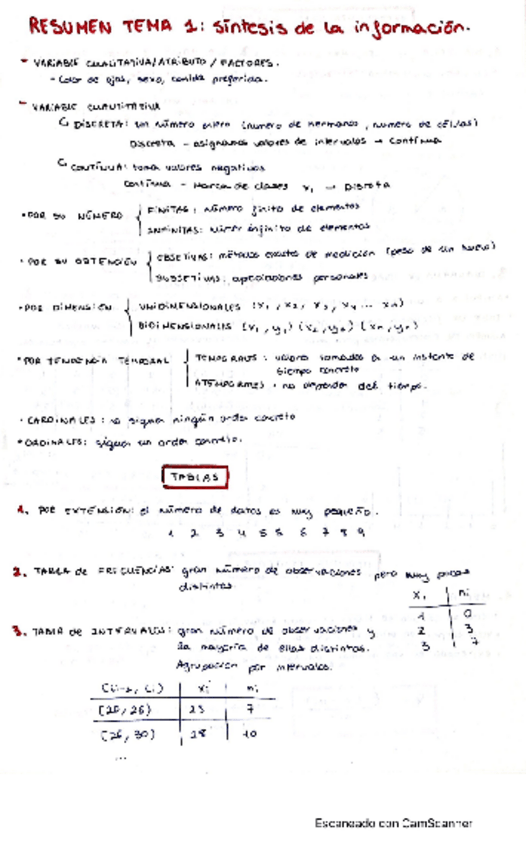 RESUMEN TEMA 1: síntesis de la información.
- VARIABLE CUALITATIVA/ATRIBUTO/FACTORES.
- Color de ojos, sexo, comida preferida.
- VARIABLE CUANTITATIVA
DISCRETA: un número entero (número de hermanos, número de células)
Discreta - asignamos valores de intervalos → Continua
CONTINUA: toma valores negativos
Continua - Marca de clases xi → Discreta
• POR SU NÚMERO
FINITAS: número finito de elementos
INFINITAS: infinito de elementos
• POR SU OBTENCIÓN
OBJETIVAS: métodos exactos de medición (peso de un huevo)
SUBJETIVAS: apreciaciones personales
• POR DIMENSIÓN
UNIDIMENSIONALES (x1, x2, x3, x4 ... xn)
BIDIMENSIONALES (x1, y1) (x2, y2) (xn, yn)
• POR TENDENCIA TEMPORAL
TEMPORALES: valores tomados a un instante de
tiempo concreto
ATEMPORALES: no dependen del tiempo.
• CARDINALES: no siguen ningún orden concreto
• ORDINALES: siguen un orden concreto.
TABLAS
1. POR EXTENSIÓN: el número de datos es muy pequeño.
1 2 3 4 5 5 6 7 8 9
2. TABLA de FRECUENCIAS: gran número de observaciones pero muy pocas
distintas.
xi ni
1 0
2 3
3 7
3. TABLA de INTERVALOS: gran número de observaciones y
la mayoría de ellas distintas.
Agrupación por intervalos.
(Li-1, Li) xi ni
[20, 26) 23 7
[26, 30) 28 10
...
Escaneado con CamScanner